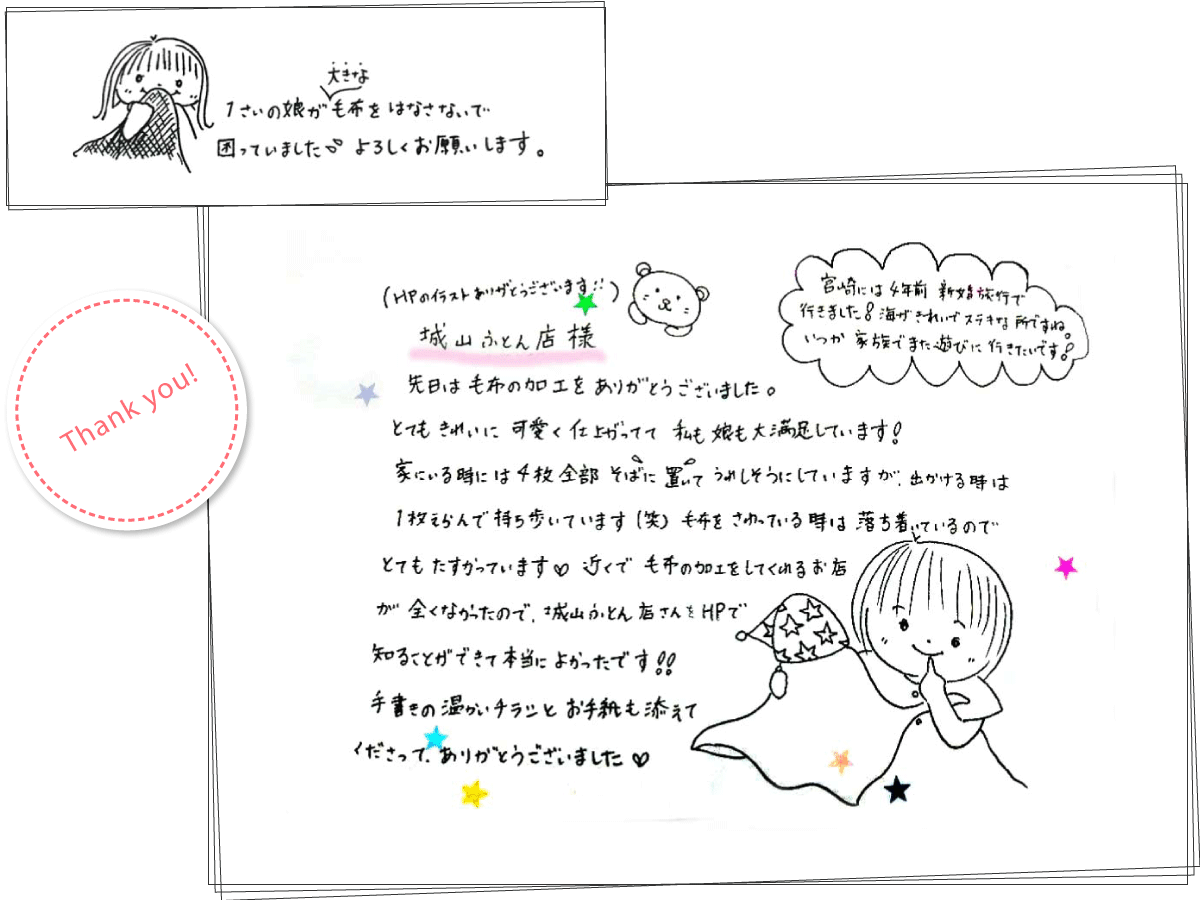 大きな
1さいの娘が毛布をはなさないで
困っていました よろしくお願いします。
Thank you!
(HPのイラストありがとうございます!!)
城山ふとん店様
宮崎には4年前 新婚旅行で
行きました! 海がきれいでステキな所ですね。
いつか 家族でまた遊びに行きたいです!
先日は毛布の加工をありがとうございました。
とてもきれいに 可愛く仕上がってて 私も娘も大満足しています!
家にいる時には4枚全部そばに置いてうれしそうにしていますが、出かける時は
1枚えらんで持ち歩いています(笑) 毛布をさわっている時は落ち着いているので
とてもたすかっています♡ 近くで毛布の加工をしてくれるお店
が全くなかったので、城山ふとん店さんをHPで
知ることができて本当によかったです!!
手書きの温かいチラシとお手紙も添えて
くださって、ありがとうございました♡